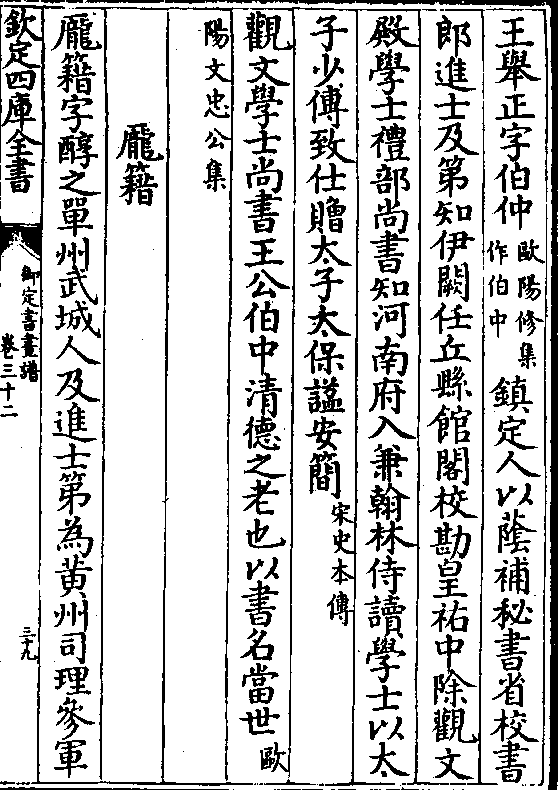 王舉正字伯仲歐陽修集作伯中鎮定人以蔭補秘書省校書
郎進士及第知伊闕任丘縣館閣校勘皇祐中除觀文
殿學士禮部尚書知河南府入兼翰林侍讀學士以太
子少傅致仕贈太子太保謚安簡宋史本傳
觀文學士尚書王公伯中清德之老也以書名當世歐
陽文忠公集
龐籍
龐籍字醇之單州武城人及進士第為黃州司理參軍
欽定四庫全書
御定書畫譜
卷三十二
三十九